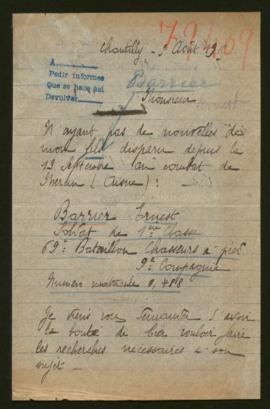 79409
Chantilly
Août
A
Pedir informes
Que se haga aqui
Devolver
Barrier
Monsieur
N ayant pas de nouvelles de
mon fils disparu depuis le
13 Septembre au combat de
(Aisne) :
Barrier Ernest
Soldat de 1ere Classe
69e Bataillon Chasseurs à pied
9e Compagnie
Numero matricule
Je viens vous demander d'avoir
la bonté de bien vouloir faire
les recherches necessaires a son
sujet